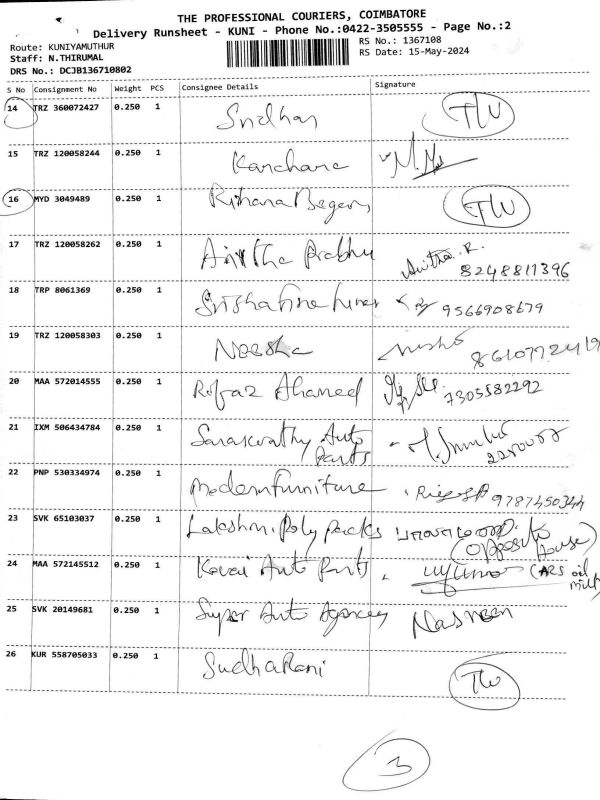 THE PROFESSIONAL COURIERS, COIMBATORE
Delivery Runsheet - KUNI - Phone No.:0422-3505555 - Page No.:2
Route: KUNIYAMUTHUR
RS No.: 1367108
Staff: N.THIRUMAL
RS Date: 15-May-2024
DRS No.: DCJB136710802
S No Consignment No Weight PCS Consignee Details Signature
14 TRZ 360072427 0.250 1 Sridhar
15 TRZ 120058244 0.250 1 Kanchana
16 MYD 3049489 0.250 1 Rihana Begam
17 TRZ 120058262 0.250 1 Anitha Prabhu Anitha. R.
8248811396
18 TRP 8061369 0.250 1 9566908679
19 TRZ 120058303 0.250 1 Neesha
8610772419
20 MAA 572014555 0.250 1 Ahamed 7305582292
21 IXM 506434784 0.250 1 Saraswathy Auto
Parts
22 PNP 530334974 0.250 1 Modern furniture 9787450344
23 SVK 65103037 0.250 1 Lakshmi Poly packs
(opposite
house)
24 MAA 572145512 0.250 1 Kovai Auto Parts (ARS oil
mill)
25 SVK 20149681 0.250 1 Super Auto Agency Nasreen
26 KUR 558705033 0.250 1 Sudha Rani
3